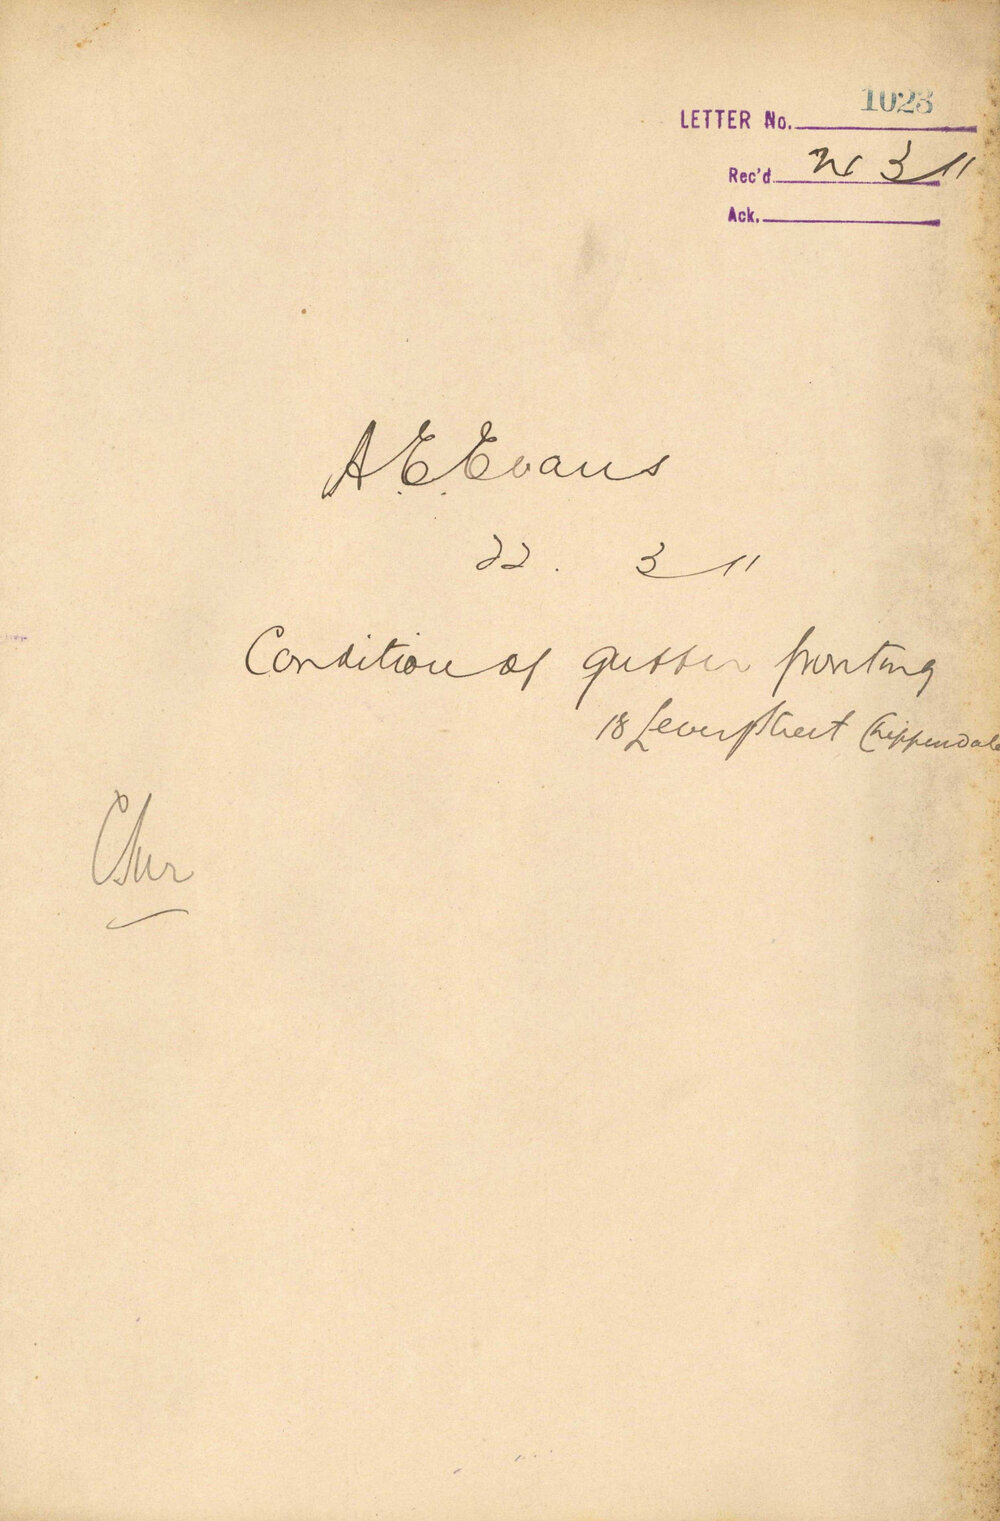 LETTER No. 1023
Rec'd 3/11
Ack.
A. E. Evans
22. 3/11
Condition of gutter fronting
18 Levey Street Chippendale